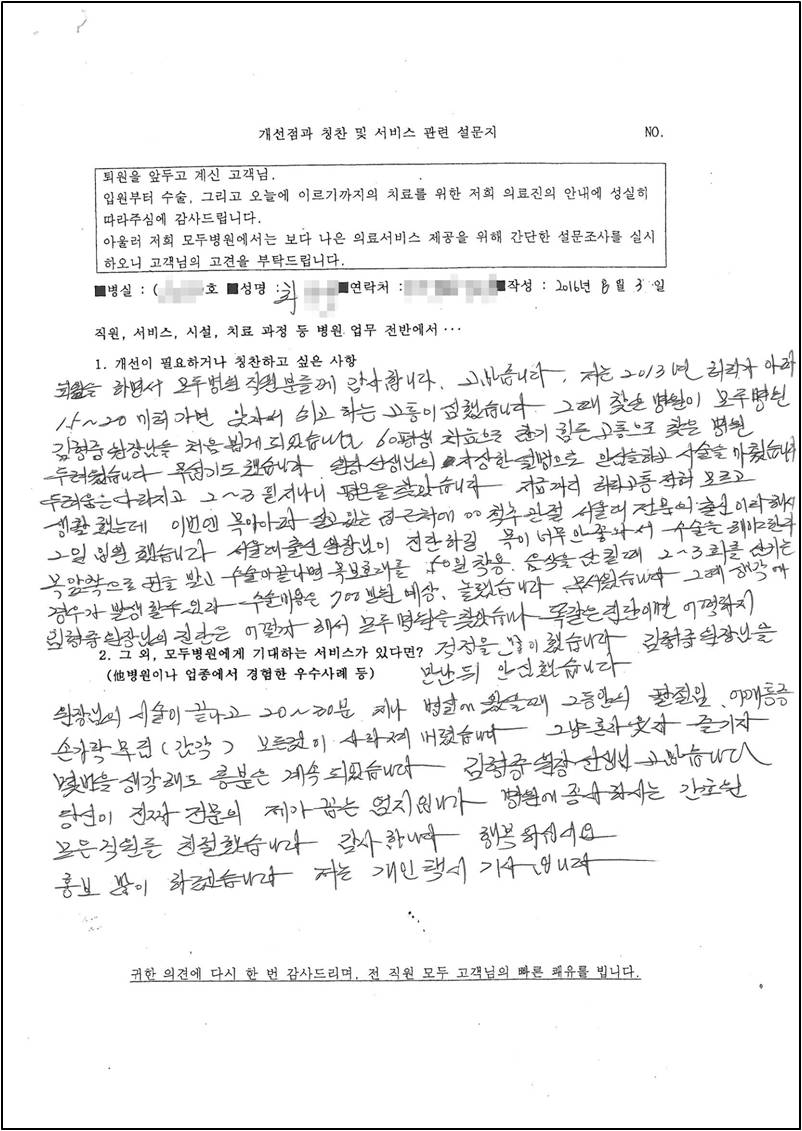 개선점과 칭찬 및 서비스 관련 설문지 NO.
퇴원을 앞두고 계신 고객님.
입원부터 수술, 그리고 오늘에 이르기까지의 치료를 위한 저희 의료진의 안내에 성실히
따라주심에 감사드립니다.
아울러 저희 모두병원에서는 보다 나은 의료서비스 제공을 위해 간단한 설문조사를 실시
하오니 고객님의 고견을 부탁드립니다.
■병실 : ( 호 ■성명 : 최 ■연락처 : ■작성 : 2016년 8월 3일
직원, 서비스, 시설, 치료 과정 등 병원 업무 전반에서 …
1. 개선이 필요하거나 칭찬하고 싶은 사항
퇴원을 하면서 모두병원 직원분들께 감사합니다. 고맙습니다. 저는 2013년 허리가 아파
15~20미터 가면 앉자서 쉬고 하는 고통이 심했습니다 그때 찾은 병원이 모두병원
김형중 원장님을 처음 뵙게 되었습니다 60평생 처음으로 힘든 고통으로 찾은 병원
두려웠습니다 무섭기도 했습니다 원장선생님의 자상한 설명으로 안심을하고 시술을 마쳤습니다
두려움은 사라지고 2~3일 지나니 평온을 찾았습니다 지금까지 허리고통 전혀 모르고
생활 했는데 이번엔 목이아파 살고있는 집 근처에 00 척추 관절 서울대 전문의 출신이라 해서
2일 입원 했습니다 서울대 출신 원장님이 진단하길 목이 너무 안 좋와서 수술을 해야 한다
목 앞쪽으로 칼을 받고 수술이끝나면 목보호대를 착용. 음식을 삼킬때 2~3회를
경우가 발생 할수 있다 수술비용은 700만원 예상. 놀랬습니다 무서웠습니다 그때 생각에
김형중 원장님의 진단은 어떨까 해서 모두병원을 찾았습니다 똑같은 진단이면 어떡하지
2. 그 외, 모두병원에게 기대하는 서비스가 있다면? 걱정을 많이 했습니다 김형중 원장님을
(他병원이나 업종에서 경험한 우수사례 등) 만난뒤 안심했습니다
원장님의 시술이 끝나고 20~30분 지나 병실에 왔을때 어깨통증
손가락 무림(감각) 모든것이 사라져 버렸습니다
몇번을 생각해도 흥분은 계속 되었습니다 김형중 원장 선생님 고맙습니다
당신이 진짜 전문의 제가 꼽는 엄지입니다 병원에 종사하시는 간호원
모든직원들 친절했습니다 감사합니다 행복하십시요
홍보 많이 하겠습니다 저는 개인택시 기사입니다
귀한 의견에 다시 한 번 감사드리며, 전 직원 모두 고객님의 빠른 쾌유를 빕니다.